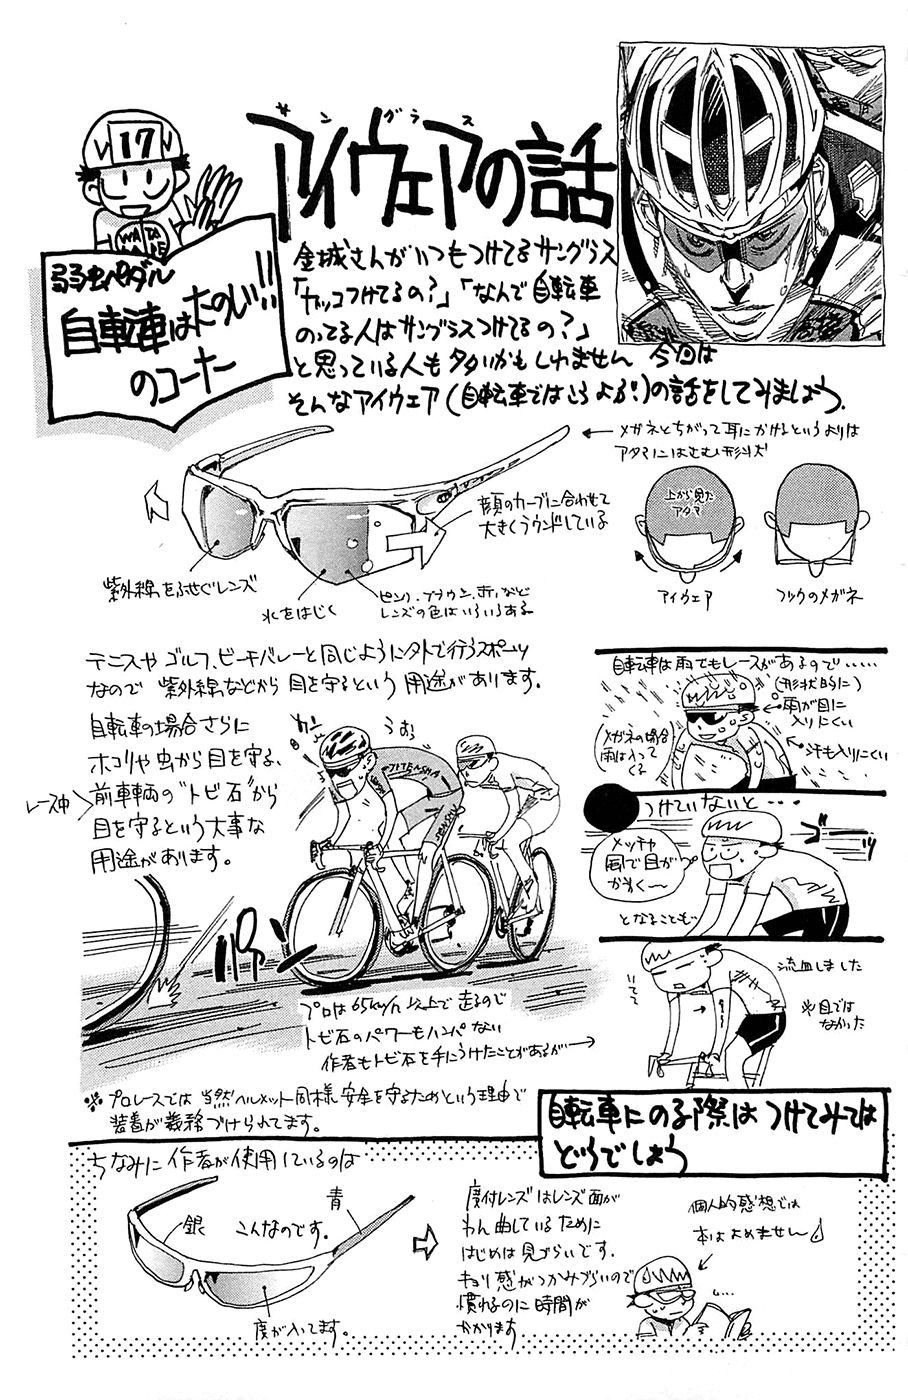 17
WATANABE
弱虫ペダル
自転車はたのしい!!
のコーナー
サングラス
アイウェアの話
金城さんがいつもつけてるサングラス
「カッコつけてるの?」「なんで自転車
のってる人はサングラスつけてるの?」
と思っている人も多いかもしれません 今回は
そんなアイウェア(自転車ではこうよぶ!)の話をしてみましょう.
メガネとちがって耳にかけるというよりは
アタマにはさむ形状だ
顔のカーブに合わせて
大きくラウンドしている
紫外線をふせぐレンズ
水をはじく
ピンク、ブラウン、赤、など
レンズの色はいろいろある
上から見た
アタマ
アイウェア
フツウのメガネ
テニスや ゴルフ、ビーチバレーと同じように外で行うスポーツ
なので 紫外線などから 目を守るという 用途があります.
自転車の場合さらに
ホコリや虫から目を守る、
レース中
前車輌の"トビ石"から
目を守るという大事な
用途があります。
カン
うお
JITENSHA
SENSHU
パァン
プロは65km/h 以上で 走るので
トビ石のパワーもハンパない
作者もトビ石を手にうけたことがあるが→
自転車は雨でもレースがあるので・・・・・
(形状的に)
雨が目に
入りにくい
汗も入りにくい
メガネの場合
雨は入って
くる
つけていないと・・・
メッチャ
風で目が
かわく〜
ゴーッ
となることも
流血しました
※目では
なかった
いてて
※プロレースでは 当然ヘルメット同様 安全を守るためという理由で
装着が義務づけられてます。
自転車にのる際は つけてみては
どうでしょう
ちなみに 作者が使用しているのは
銀
こんなのです.
青
度が入ってます。
度付レンズはレンズ面が
わん曲しているために
はじめは見づらいです.
キョリ感がつかみづらいので
慣れるのに 時間が
かかります
個人的感想では
本はよめません